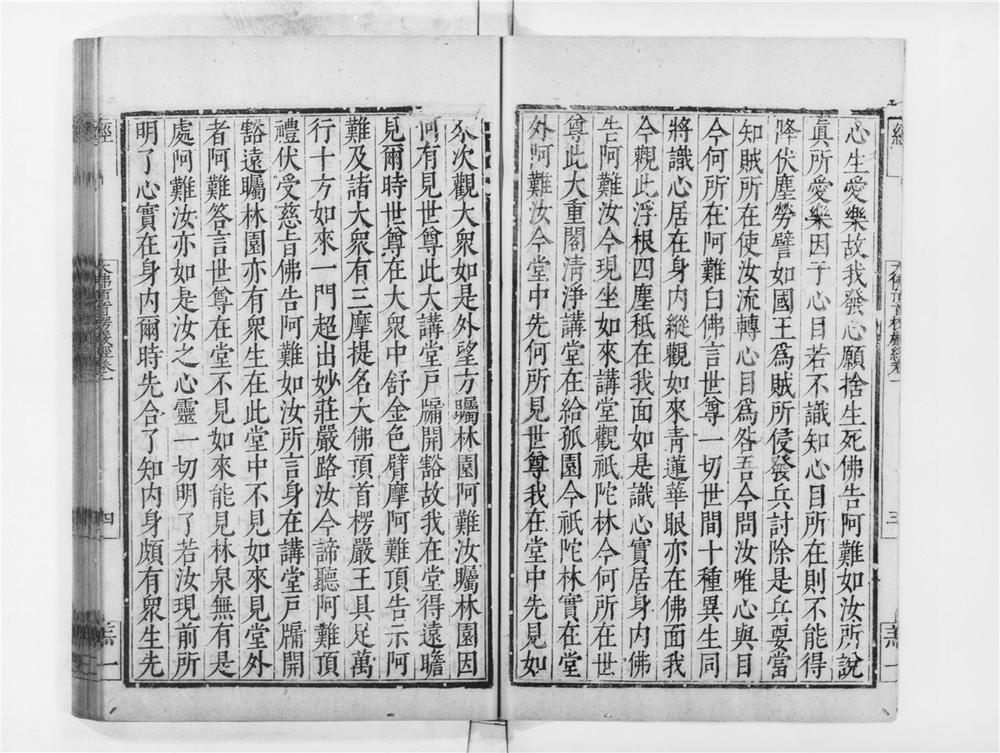 心生愛樂故我發心願捨生死佛告阿難如汝所說
眞所愛樂因于心目若不識知心目所在則不能得
降伏塵勞譬如國王爲賊所侵發兵討除是兵要當
知賊所在使汝流轉心目爲咎吾今問汝唯心與目
今何所在阿難白佛言世尊一切世間十種異生同
將識心居在身內縱觀如來青蓮華眼亦在佛面我
今觀此浮根四塵秖在我面如是識心實居身內佛
告阿難汝今現坐如來講堂觀祇陀林今何所在世
尊此大重閣清淨講堂在給孤園今祇陀林實在堂
外阿難汝今堂中先何所見世尊我在堂中先見如
來次觀大衆如是外望方矚林園阿難汝矚林園因
何有見世尊此大講堂戸牖開豁故我在堂得遠瞻
見爾時世尊在大衆中舒金色臂摩阿難頂告示阿
難及諸大衆有三摩提名大佛頂首楞嚴王具足萬
行十方如來一門超出妙莊嚴路汝今諦聽阿難頂
禮伏受慈旨佛告阿難如汝所言身在講堂戸牖開
豁遠矚林園亦有衆生在此堂中不見如來見堂外
者阿難答言世尊在堂不見如來能見林泉無有是
處阿難汝亦如是汝之心靈一切明了若汝現前所
明了心實在身內爾時先合了知內身頗有衆生先
經
大佛頂首楞嚴經卷一
三
一
經
大佛頂首楞嚴經卷一
四
一